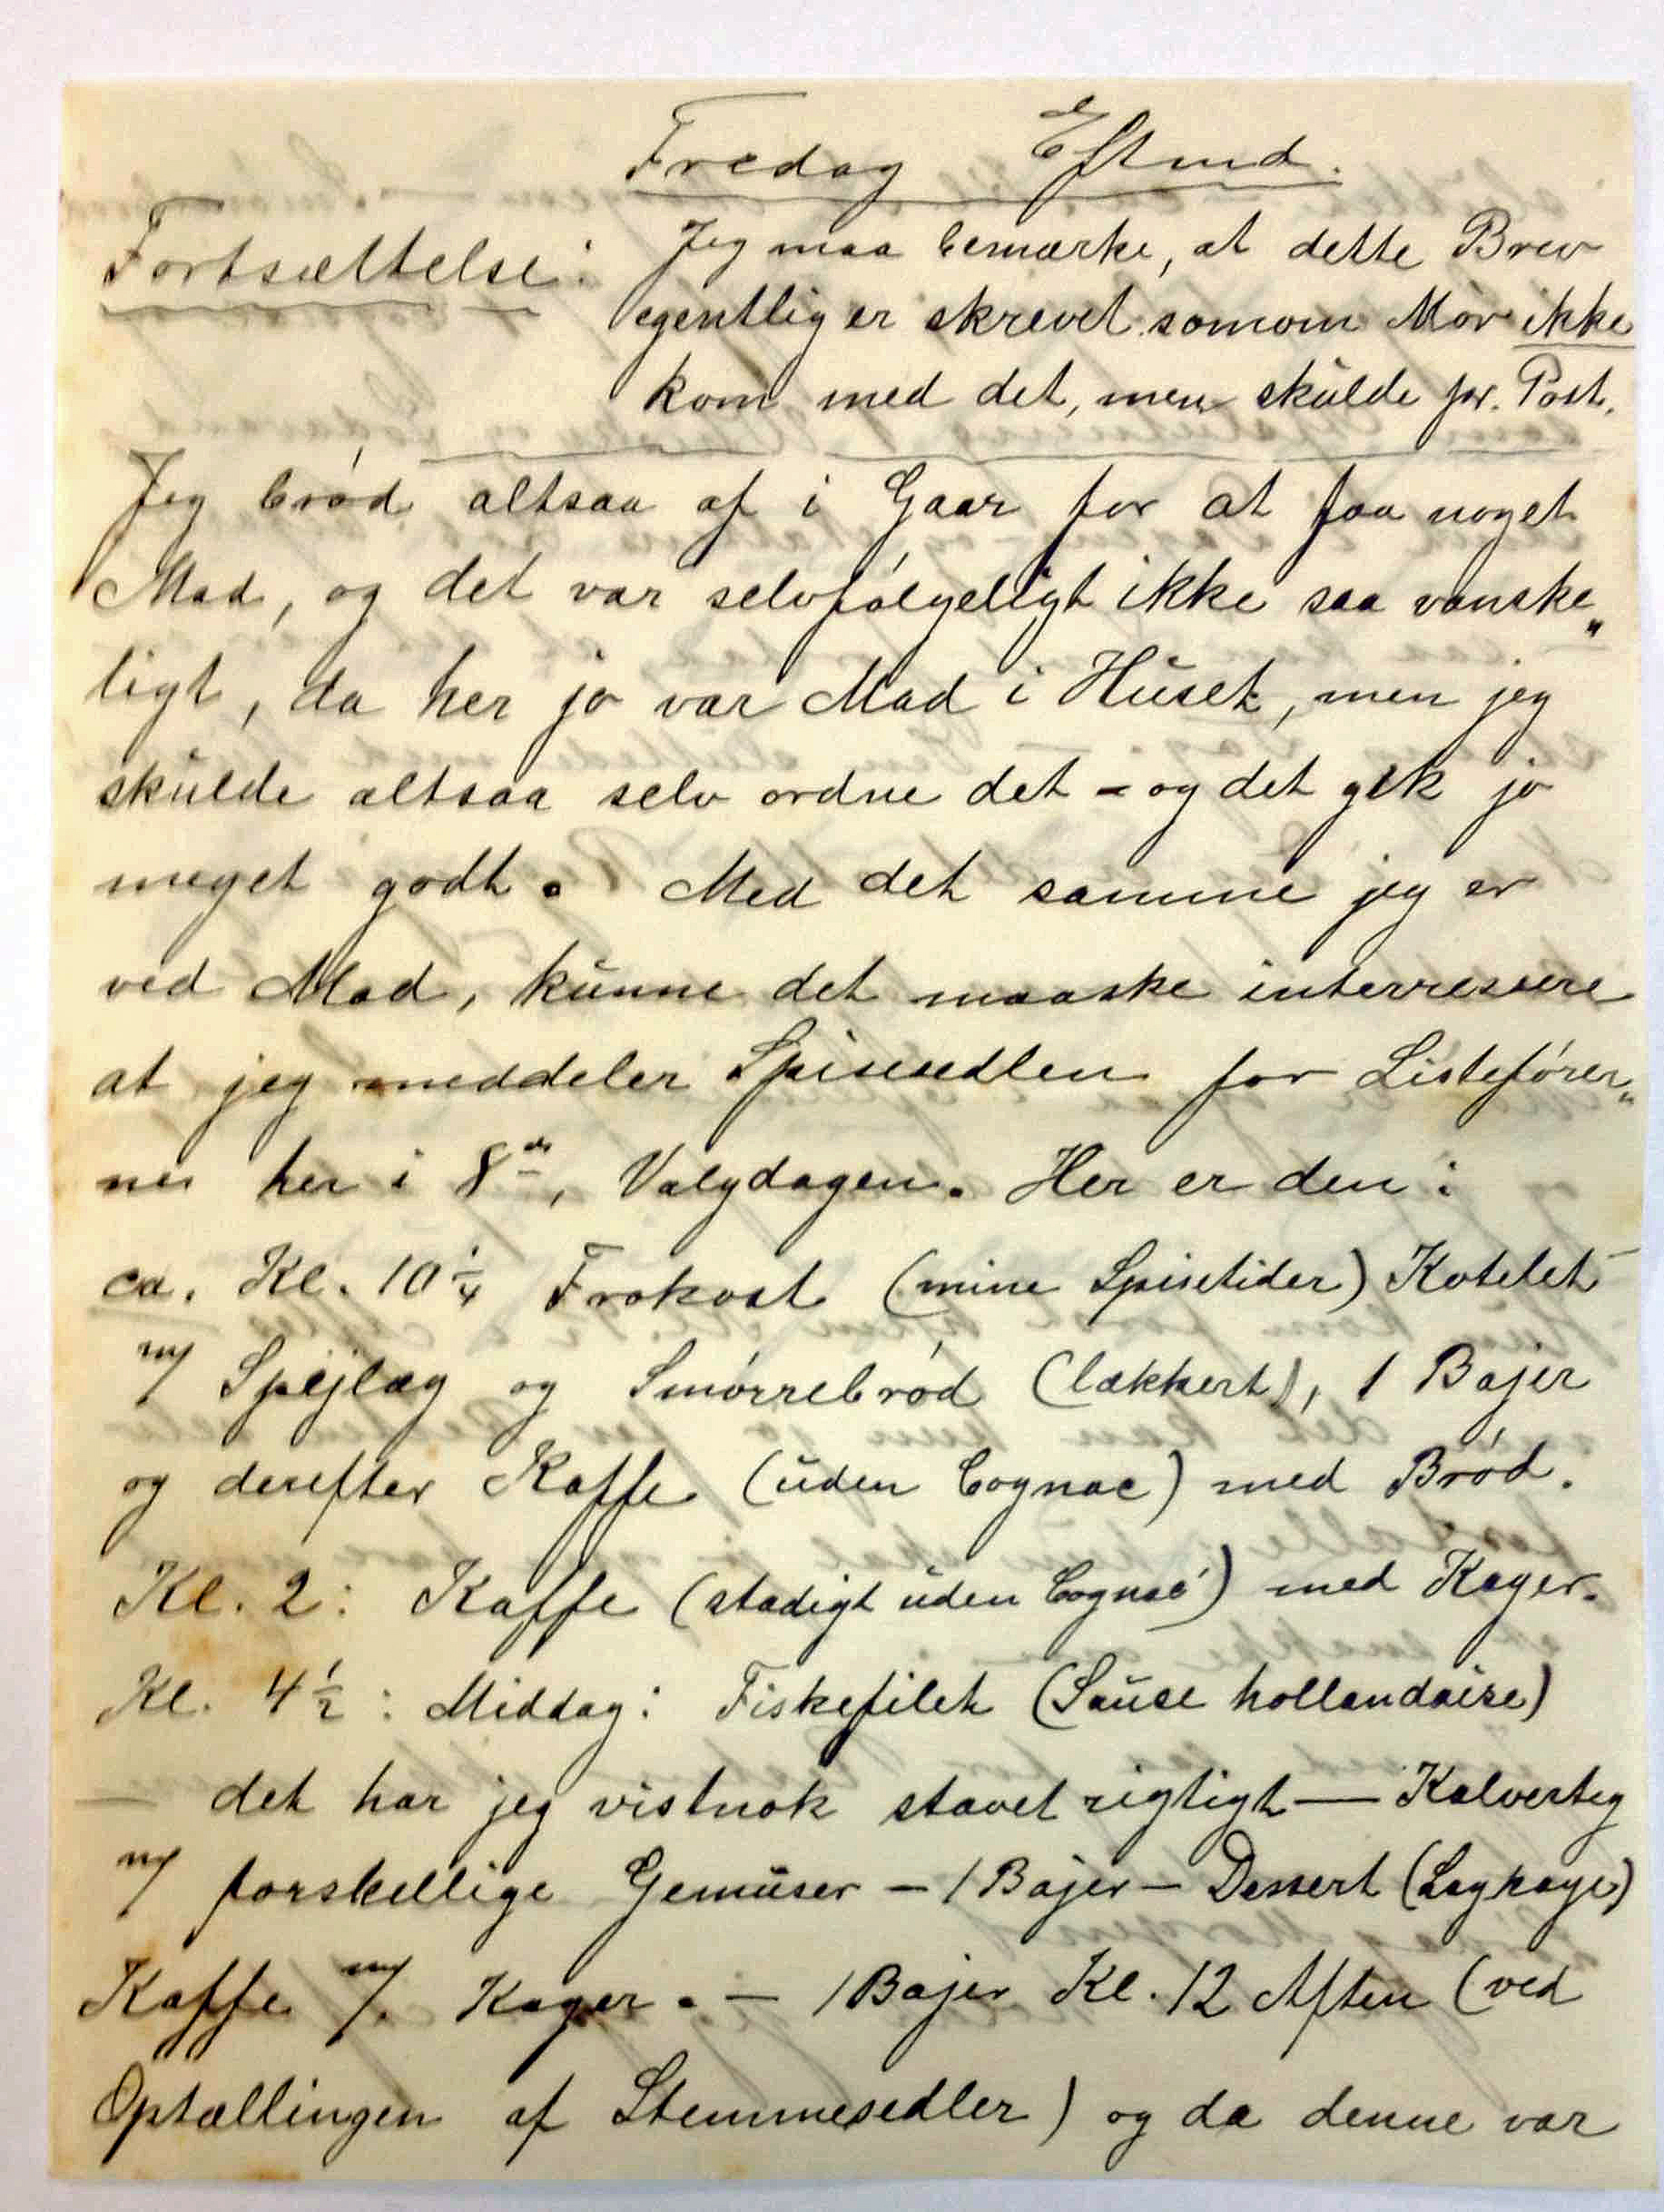 Fredag Eftmd.
Fortsættelse: Jeg maa bemærke, at dette Brev
egentlig er skrevet somom Mor ikke
kom med det, men skulde pr. Post.
Jeg brød altsaa af i Gaar for at faa noget
Mad, og det var selvfølgeligt ikke saa vanske„
ligt, da her jo var Mad i Huset, men jeg
skulde altsaa selv ordne det - og det gik jo
meget godt. Med det samme jeg er
ved Mad, kunne det maaske interressere
at jeg meddeler Spisesedlen for Listefører„
nes her i 8de, Valgdagen. Her er den:
ca. Kl. 10 1/4 Frokost (mine Spisetider) Kotelet
m/ Spejlæg og Smørrebrød (lækkert), 1 Bajer
og derefter Kaffe (uden Cognac) med Brød.
Kl. 2: Kaffe (stadigt uden Cognac) med Kager.
Kl. 4 1/2: Middag: Fiskefilet (Sause hollandaise)
— det har jeg vistnok stavet rigtigt — Kalvesteg
m/ forskellige Gemüser — 1 Bajer — Dessert (Lagkage)
Kaffe m/ Kager. — 1 Bajer Kl. 12 Aften (ved
Optællingen af Stemmesedler) og da denne var